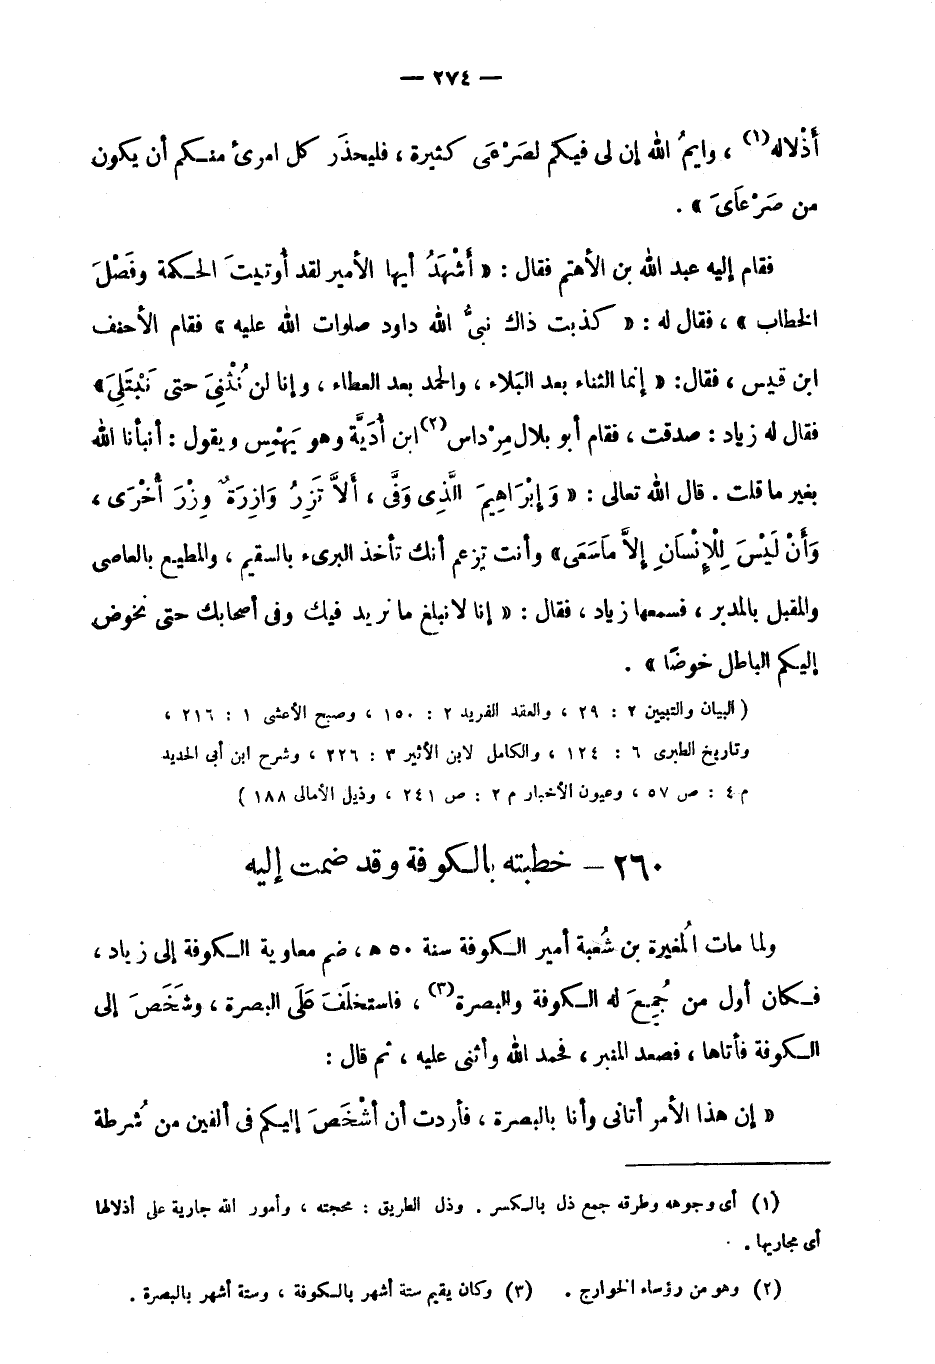 — ٢٧٤ —
أَذْلاله(١) ، وايمُ الله إن لى فيكم لصَرْعَى كثيرة ، فليحذَر كل امرئ منكم أن يكون
من صَرْعَاىَ » .
فقام إليه عبد الله بن الأهتم فقال : « أَشْهَدُ أيها الأمير لقد أُوتيتَ الحكمة وفَصْلَ
الخطاب » ، فقال له : « كذبت ذاك نبىُّ الله داود صلوات الله عليه » فقام الأحنف
ابن قيس ، فقال: « إنما الثناء بعد البَلاء ، والحمد بعد العطاء ، وإنا لن نُثْنِىَ حتى نَبْتَلِىَ »
فقال له زياد : صدقت ، فقام أبو بلال مِرْداس(٢) ابن أُدَيَّة وهو يَهْمِس ويقول : أنبأنا الله
بغير ما قلت . قال الله تعالى : « وَإِبْرَاهِيمَ الَّذِى وَفَّى ، أَلاَّ تَزِرُ وَازِرَةٌ وِزْرَ أُخْرَى ،
وَأَنْ لَيْسَ لِلْإِنْسَانِ إِلاَّ مَاسَعَى » وأنت تزعم أنك تأخذ البرىء بالسقيم ، والمطيع بالعاصى
والمقبل بالمدبر ، فسمعها زياد ، فقال : « إنا لانبلغ ما نريد فيك وفى أصحابك حتى نخوض
إليكم الباطل خوضًا » .
( البيان والتبيين ٢ : ٢٩ ، والعقد الفريد ٢ : ١٥٠ ، وصبح الأعشى ١ : ٢١٦ ،
وتاريخ الطبرى ٦ : ١٢٤ ، والكامل لابن الأثير ٣ : ٢٢٦ ، وشرح ابن أبى الحديد
م ٤ : ص ٥٧ ، وعيون الأخبار م ٢ : ص ٢٤١ ، وذيل الأمالى ١٨٨ )
٢٦٠ – خطبته بالكوفة وقد ضمت إليه
ولما مات المُغيرة بن شُعبة أمير الكوفة سنة ٥٠ ه ، ضم معاوية الكوفة إلى زياد ،
فكان أول من جُمِعَ له الكوفة والبصرة(٣) ، فاستخلَفَ عَلَى البصرة ، وشَخَصَ إلى
الكوفة فأتاها ، فصعد المنبر ، فحمد الله وأثنى عليه ، ثم قال :
« إن هذا الأمر أتانى وأنا بالبصرة ، فأردت أن أشْخَصَ إليكم فى ألفين من شُرطة
(١) أى وجوهه وطرقه جمع ذل بالكسر . وذل الطريق : محجته ، وأمور الله جارية على أذلالها
أى مجاريها .
(٢) وهو من رؤساء الخوارج . (٣) وكان يقيم ستة أشهر بالكوفة ، وستة أشهر بالبصرة .